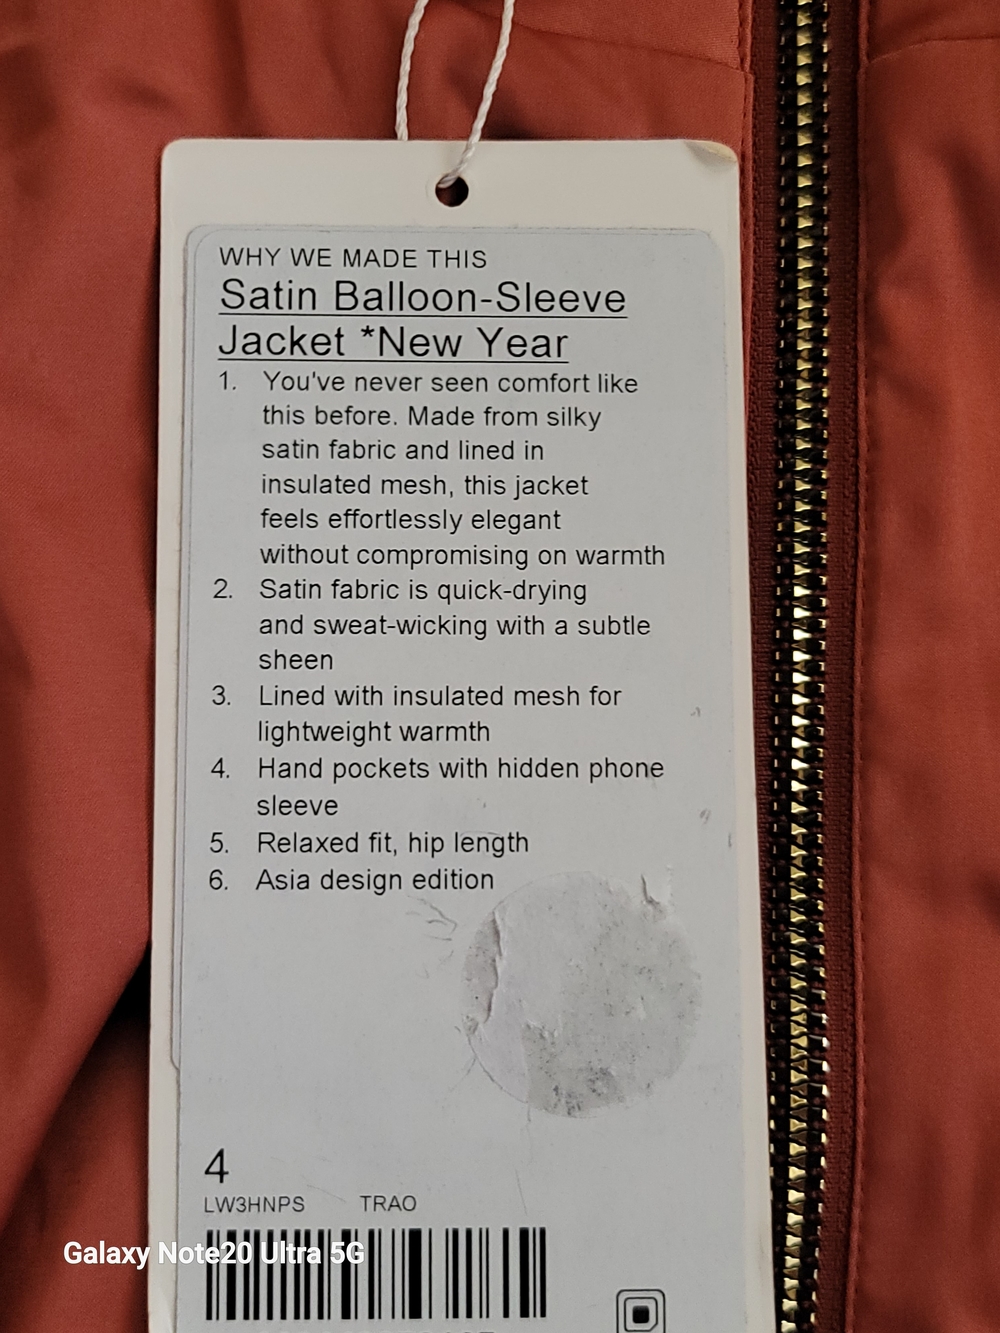 WHY WE MADE THIS
Satin Balloon-Sleeve
Jacket *New Year
1. You've never seen comfort like
this before. Made from silky
satin fabric and lined in
insulated mesh, this jacket
feels effortlessly elegant
without compromising on warmth
2. Satin fabric is quick-drying
and sweat-wicking with a subtle
sheen
3. Lined with insulated mesh for
lightweight warmth
4. Hand pockets with hidden phone
sleeve
5. Relaxed fit, hip length
6. Asia design edition
4
LW3HNPS TRAO
Galaxy Note20 Ultra 5G